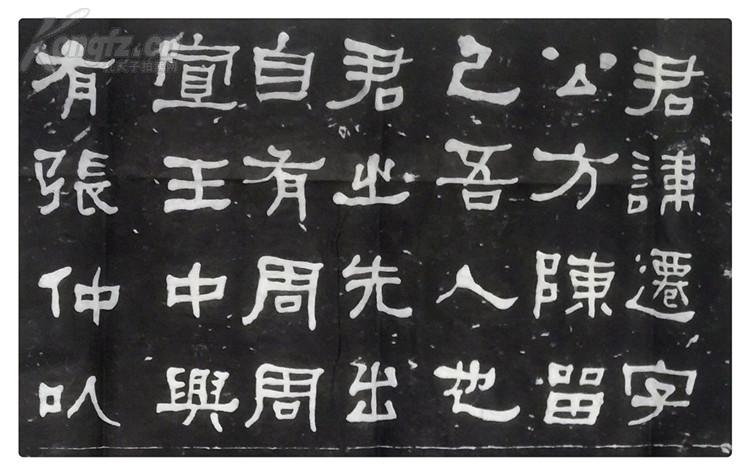 君諱遷字
公方陳留
己吾人也
君之先出
自有周周
宣王中興
有張仲以
Kongfz.cn
孔夫子拍卖网